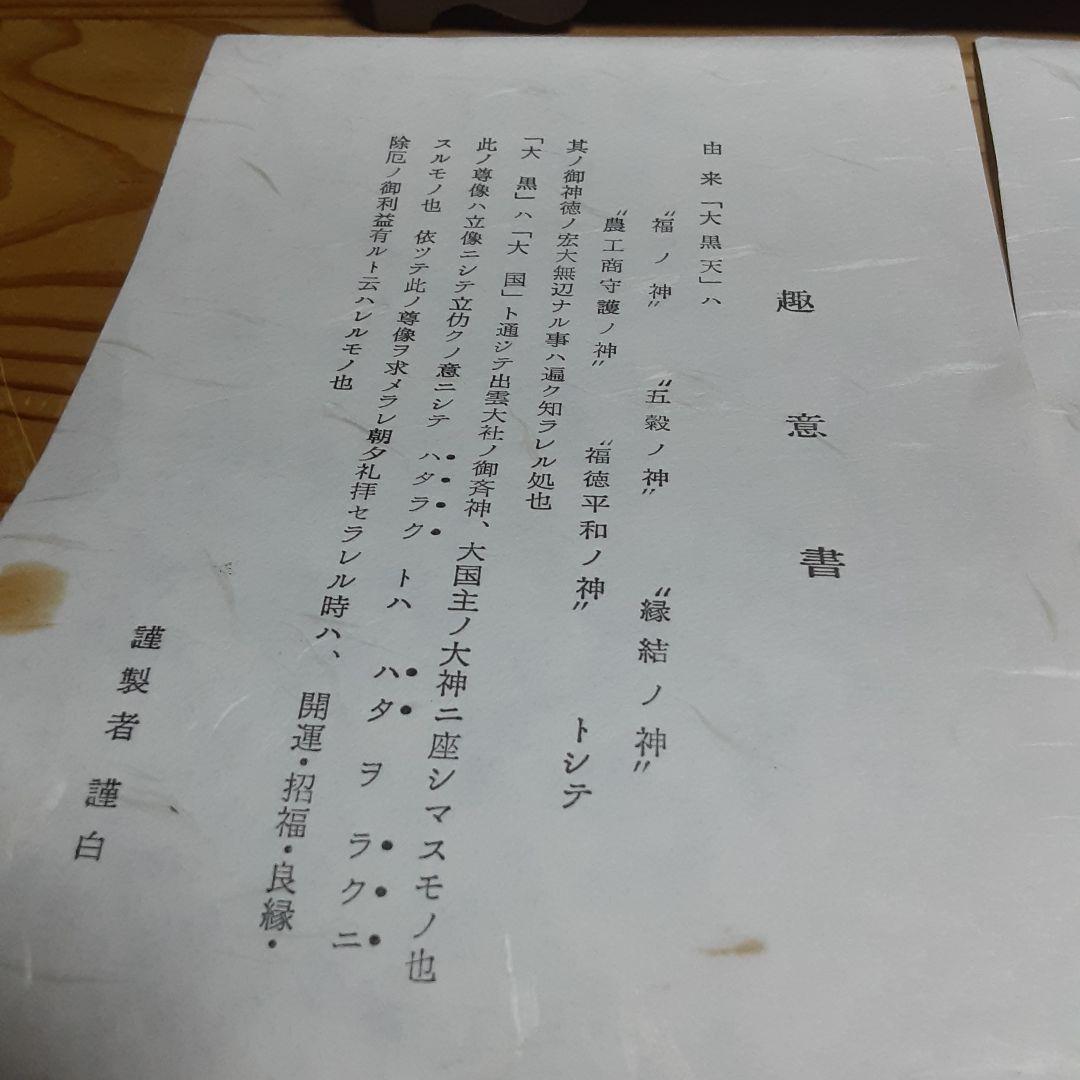 趣意書
由来「大黒天」ハ
〝福ノ神〟 〝五穀ノ神〟 〝縁結ノ神〟
〝農工商守護ノ神〟 〝福徳平和ノ神〟 トシテ
其ノ御神徳ノ宏大無辺ナル事ハ遍ク知ラレル処也
「大黒」ハ「大国」ト通ジテ出雲大社ノ御斉神、大国主ノ大神ニ座シマスモノ也
此ノ尊像ハ立像ニシテ立仂クノ意ニシテ ハタラク トハ ハタヲラクニ
スルモノ也 依ツテ此ノ尊像ヲ求メラレ朝夕礼拝セラレル時ハ、開運・招福・良縁・
除厄ノ御利益有ルト云ハレルモノ也
謹製者 謹白